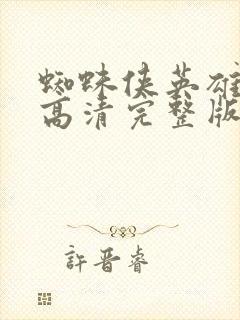 蜘蛛侠英雄
高清完整版
許晋睿